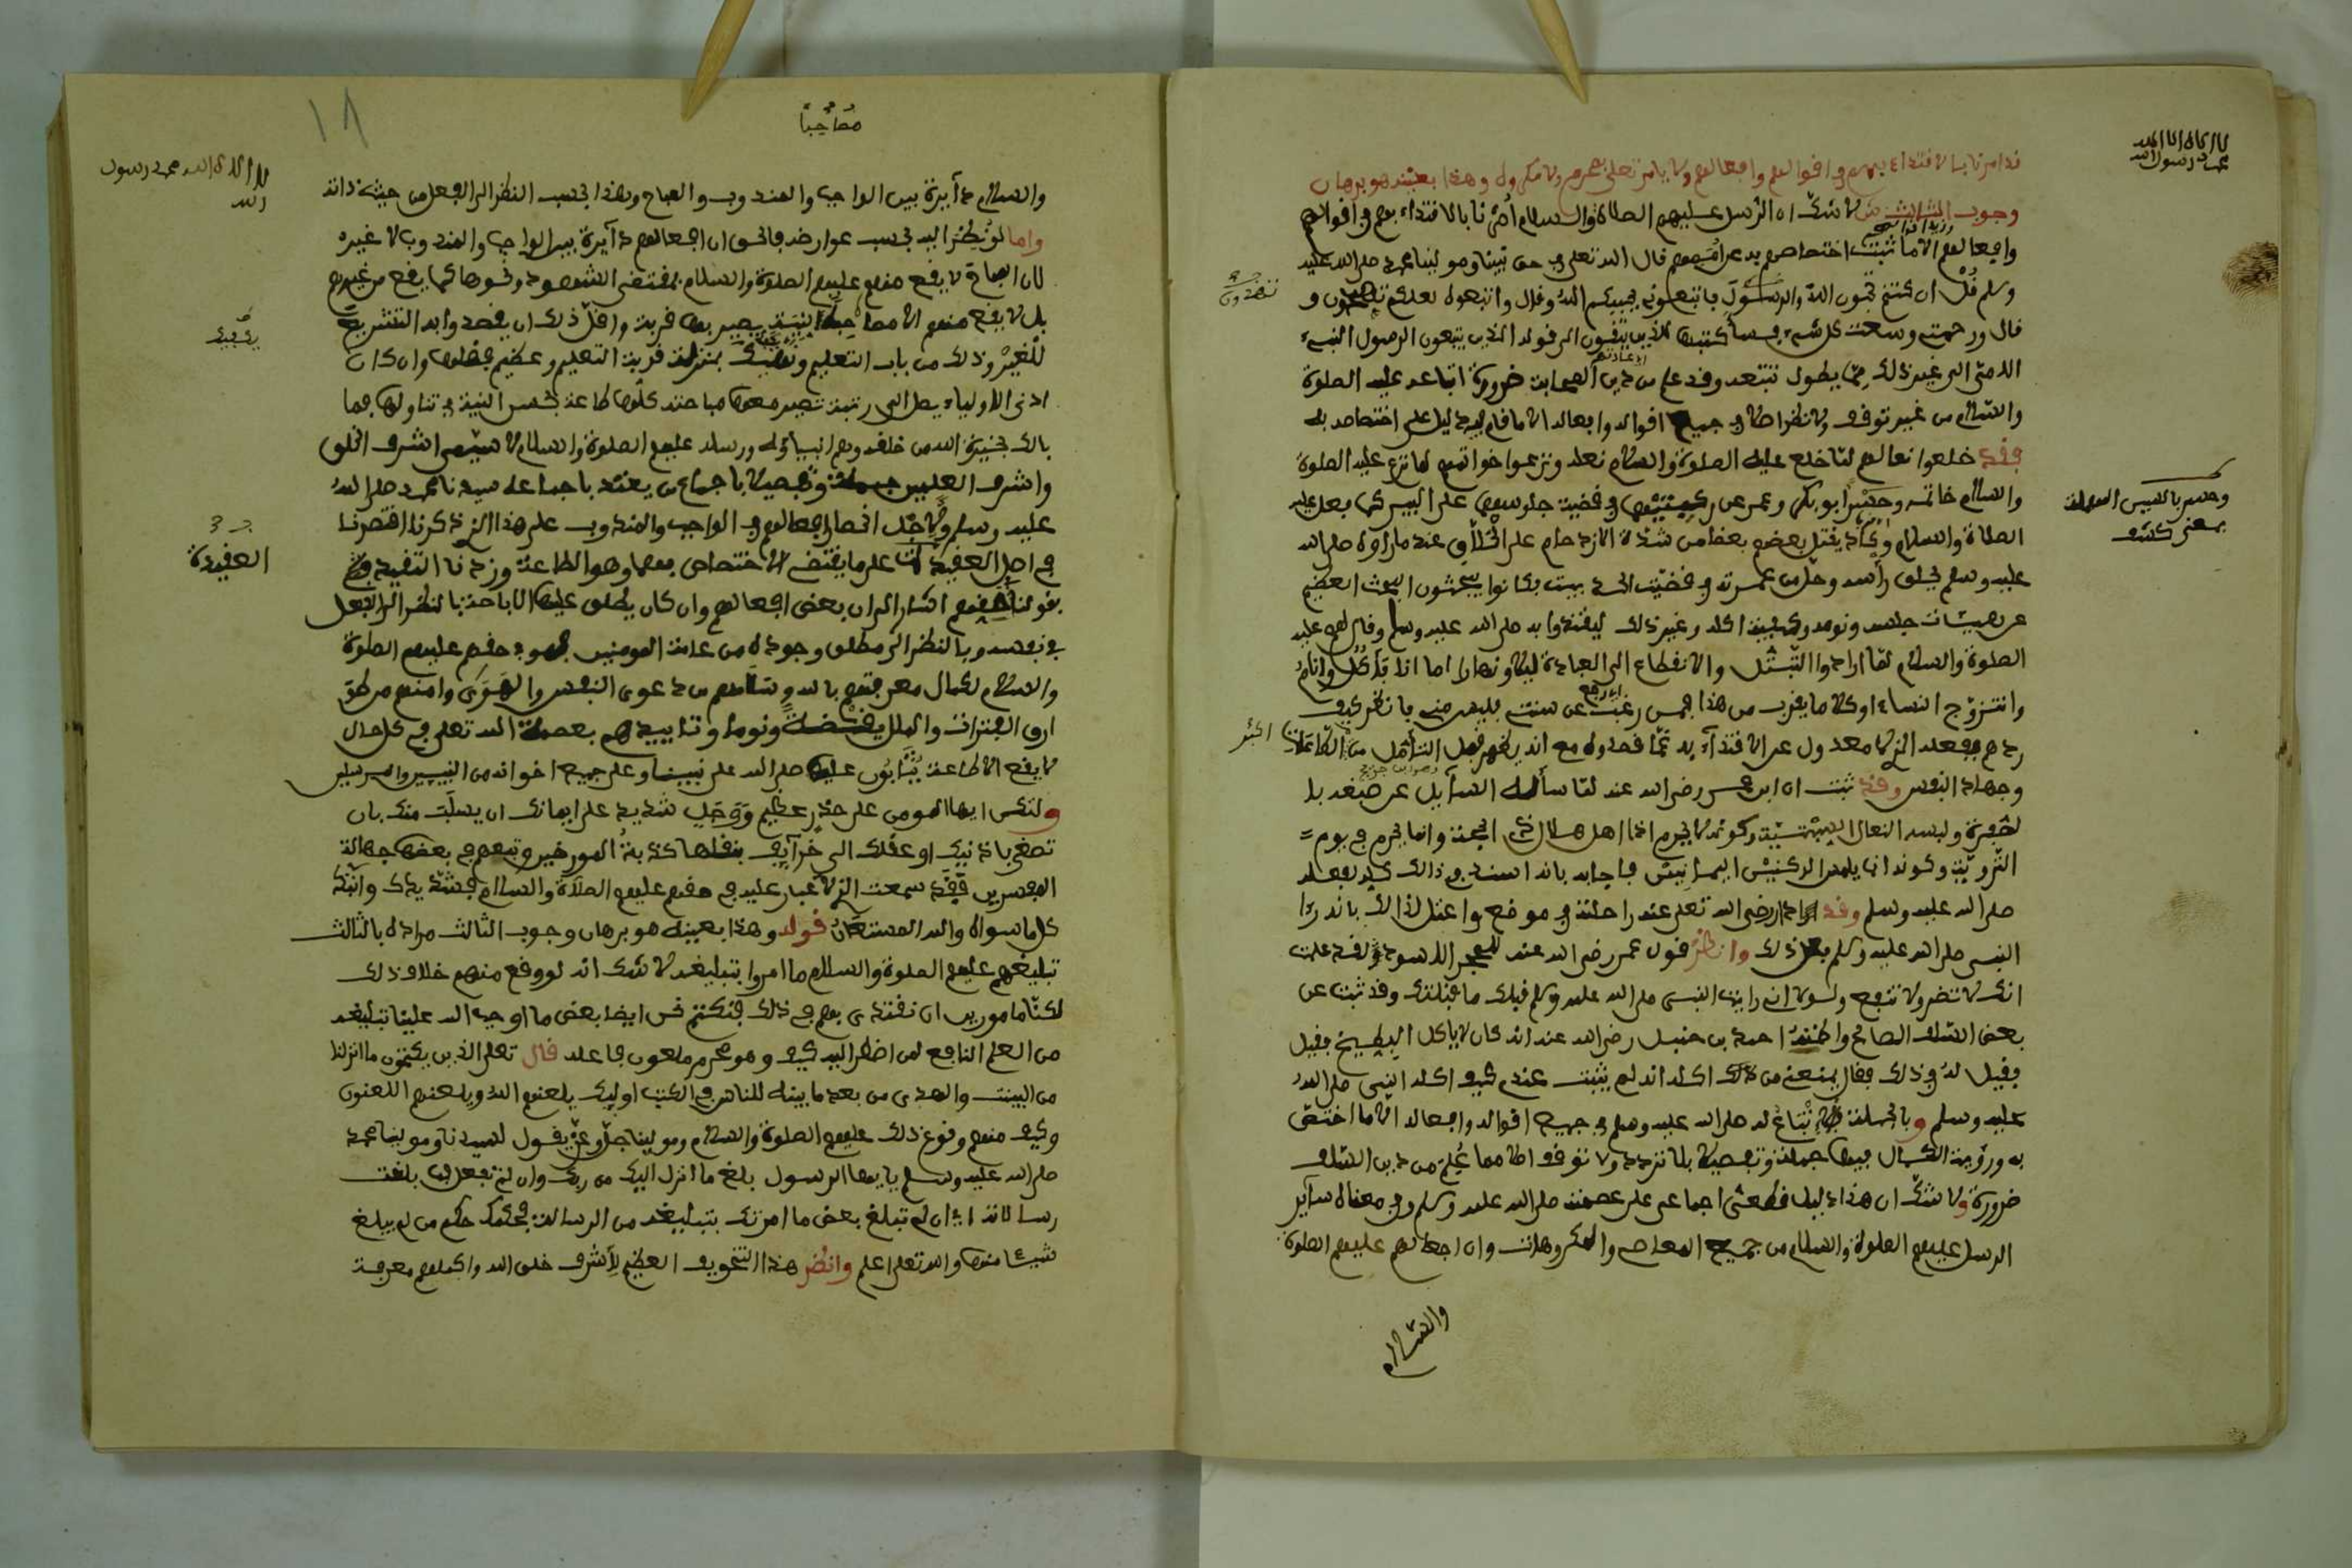 لا اله الا الله
محمد رسول الله
قد امرنا بالاقتداء بهم في اقوالهم وافعالهم ولا يامر تعلى بمحرم ولا مكروه وهذا بعينه هو برهان
وجوب الثالث ش لا شك ان الرسل عليهم الصلاة والسلام أمرنا بالاقتداء بهم في اقوالهم
وافعالهم الا ما ثبت اختصاصهم به عن أممهم قال الله تعلى في حق نبينا ومولينا محمد صلى الله عليه
وسلم قل ان كنتم تحبون الله والرسول فاتبعوني يحببكم الله وقال واتبعوه لعلكم تهتدون و
قال ورحمتي وسعت كل شيء فسأكتبها للذين يتقون الى قوله الذين يتبعون الرسول النبيء
الامي الى غير ذلك مما يطول تتبعه وقد علم من دين الصحابة ضرورة اتباعه عليه الصلوة
والسلام من غير توقف ولا نظر اصلا في جميع اقواله وافعاله الا ما قام فيه دليل على اختصاصه به
فقد خلعوا نعالهم لما خلع عليه الصلوة والسلام نعله ونزعوا خواتمهم لما نزع عليه الصلوة
والسلام خاتمه وحسر ابو بكر وعمر عن ركبتيهما في قضية جلوسهم على البير كما فعل عليه
الصلاة والسلام وكاد يقتل بعضهم بعضا من شدة الازدحام على الحلاق عند ما راوه صلى الله
عليه وسلم يحلق رأسه وحل من عمرته في قضية الحديبية وكانوا يبحثون البحث العظيم
عن هيئات جلوسه ونومه وكيفية اكله وغير ذلك ليقتدوا به صلى الله عليه وسلم وقال لهم عليه
الصلوة والسلام لما ارادوا التبتل والانقطاع الى العبادة ليلا ونهارا اما انا فآكل وانام
واتزوج النساء او كلاما يقرب من هذا فمن رغب عن سنتي فليس مني فانظر كيف
ردهم بفعله الذي لا معدول عن الاقتداء به عما قصدوه مع انه يظهر قبل التأمل من الطاعات
وجهاد النفس وقد ثبت ان ابن عمر رضي الله عنه لما سأله السآيل عن صبغه با
لصفرة ولبسه النعال السبتية وكونه لا يحرم اذا اهل هلال ذي الحجة وانما يحرم في يوم
التروية وكونه انما يلمس الركنين اليمانيين فاجابه بانه استند في ذلك كله لفعله
صلى الله عليه وسلم وقد ادار رضي الله تعلى عنه راحلته في موضع واعتل لذلك بانه رءا
النبي صلى الله عليه وسلم فعل ذلك وانظر قول عمر رضي الله عنه للحجر الاسود ولقد علمت
انك لا تضر ولا تنفع ولولا اني رايت النبي صلى الله عليه وسلم قبلك ما قبلتك وقد ثبت عن
بعض السلف الصالح واظنه احمد بن حنبل رضي الله عنه انه كان لا ياكل البطيخ فقيل
فقيل له في ذلك فقال يمنعني من اكله انه لم يثبت عندي كيف اكله النبي صلى الله
عليه وسلم وبالجملة فالاتباع له صلى الله عليه وسلم في جميع اقواله وافعاله الا ما اختص
به ورؤية الكمال فيها جملة وتفصيلا بلا تردد ولا توقف اصلا مما علم من دين السلف
ضرورة ولا شك ان هذا دليل قطعي اجماعي على عصمته صلى الله عليه وسلم وفي معناه سآير
الرسل عليهم الصلوة والسلام من جميع المعاصي والمكروهات وان افعالهم عليهم الصلوة
والسلام
وحسر بالسين المهملة
بمعنى كشف
تهتدون
لا اله الا الله محمد رسول
الله
والسلام دآيرة بين الواجب والمندوب والمباح وهذا بحسب النظر الى الفعل من حيث ذاته
واما لو نظر اليه بحسب عوارضه فالحق ان افعالهم دآيرة بين الواجب والمندوب لا غيره
لان المباح لا يقع منهم عليهم الصلوة والسلام بمقتضى الشهوة ونحوها كما يقع من غيرهم
بل لا يقع منهم الا مصاحبا لنية يصير بها قربة واقل ذلك ان يقصدوا به التشريع
للغير وذلك من باب التعليم وناهيك بمنزلة قربة التعليم وعظيم فضلها وان كان
ادنى الاولياء يصل الى رتبة تصير معها مباحته كلها طاعة بحسن النية في تناولها فما
بالك بخيرة الله من خلقه وهم انبيآؤه ورسله عليهم الصلوة والسلام لا سيما اشرف الخلق
واشرف العلمين جملة وتفصيلا باجماع من يعتد باجماعه سيدنا محمد صلى الله
عليه وسلم ولاجل انحصار افعالهم في الواجب والمندوب على هذا الذي ذكرنا اقتصرنا
في اصل العقيدة على ما يقتضي الاختصاص بهما وهو الطاعة وزدنا التقييد
بقولنا في حقهم اشارا الى ان بعض افعالهم وان كان يطلق عليها الاباحة بالنظر الى الفعل
في نفسه وبالنظر الى مطلق وجوده من عامة المومنين فهو في حقهم عليهم الصلوة
والسلام لكمال معرفتهم بالله وسلامتهم من دعوى النفس والهوى وامنهم من طوّ
ارق الفترات والملل يقظة ونوما وتاييدهم بعصمة الله تعلى في كل حال
لا يقع الا طاعة يثابون عليها صلى الله على نبينا وعلى جميع اخوانه من النبيين والمرسلين
ولتكن ايها المومن على حذر عظيم ووجل شديد على ايمانك ان يسلب منك بان
تصغي باذنيك او عقلك الى خرآيف ينقلها كذبة المورخين وتبعهم في بعضها جهالة
المفسرين فقد سمعت الذي لا غبار عليه في حقهم عليهم الصلاة والسلام فشد يدك وانبذ
كل ما سواه والله المستعان قوله وهذا بعينه هو برهان وجوب الثالث مراده بالثالث
تبليغهم عليهم الصلوة والسلام ما امروا بتبليغه لا شك انه لو وقع منهم خلاف ذلك
لكنا مامورين ان نقتدي بهم في ذلك فنكتم نحن ايضا بعض ما اوجب الله علينا تبليغه
من العلم النافع لمن اضطر اليه كيف وهو محرم ملعون فاعله قال تعلى الذين يكتمون ما انزلنا
من البينت والهدى من بعد ما بينه للناس في الكتب اوليك يلعنهم الله ويلعنهم اللعنون
وكيف منهم وقوع ذلك عليهم الصلوة والسلام ومولينا جل وعز يقول لسيدنا ومولينا محمد
صلى الله عليه وسلم يايها الرسول بلغ ما انزل اليك من ربك وان لم تفعل فما بلغت
رسالاته اي ان لم تبلغ بعض ما امرتك بتبليغه من الرسالة فحكمك حكم من لم يبلغ
شيئا منها والله تعلى اعلم وانظر هذا التخويف العظيم لأشرف خلق الله واكملهم معرفة
العقيدة